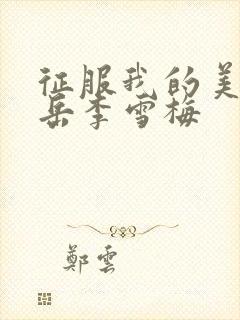 征服我的美
岳李雪梅
鄭雲